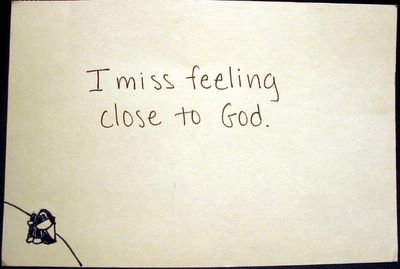 I miss feeling
close to God.